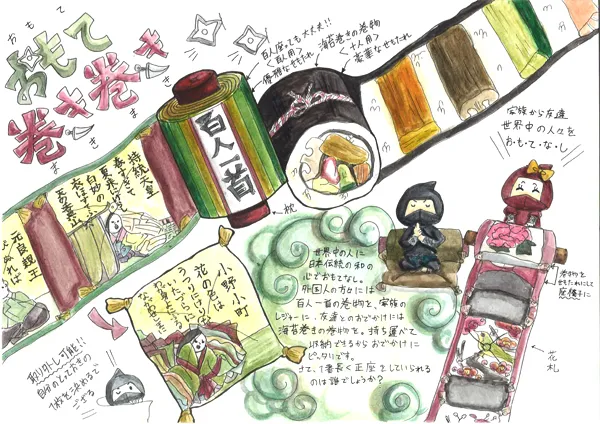 おもて
おもて
巻き巻き
まき まき
百人座っても大丈夫!!
<百人用>
優雅なせもたれ
海苔巻きの巻物
<十人用>
豪華なせもたれ
百人一首
枕
家族から友達
世界中の人々を
お・も・て・な・し
持統天皇
春すぎて
夏来に
白妙の
衣ほすてふ
天の香具山
元良親王
わびぬれば
小野小町
花の色は
うつりにけりな
世界中の人に
日本伝統の和の
心でおもてなし。
外国人の方々には
百人一首の巻物を、家族の
レジャーに、友達とのおでかけには
海苔巻きの巻物を。持ち運べて
収納できるからおでかけに
ピッタリです。
さて、1番長く正座をしていられる
のは誰でしょうか?
巻物を
せもたれにして
座椅子に
花札
取り外し可能!!
自分のとっておきの
1枚を決めるで
ござる